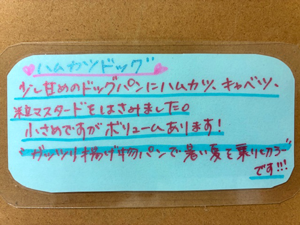 ハムカツドッグ
少し甘めのドッグパンにハムカツ、キャベツ、
粒マスタードをはさみました。
小さめですがボリュームあります!
ガッツリ揚げ物パンで暑い夏を乗り切ろー
です!!!